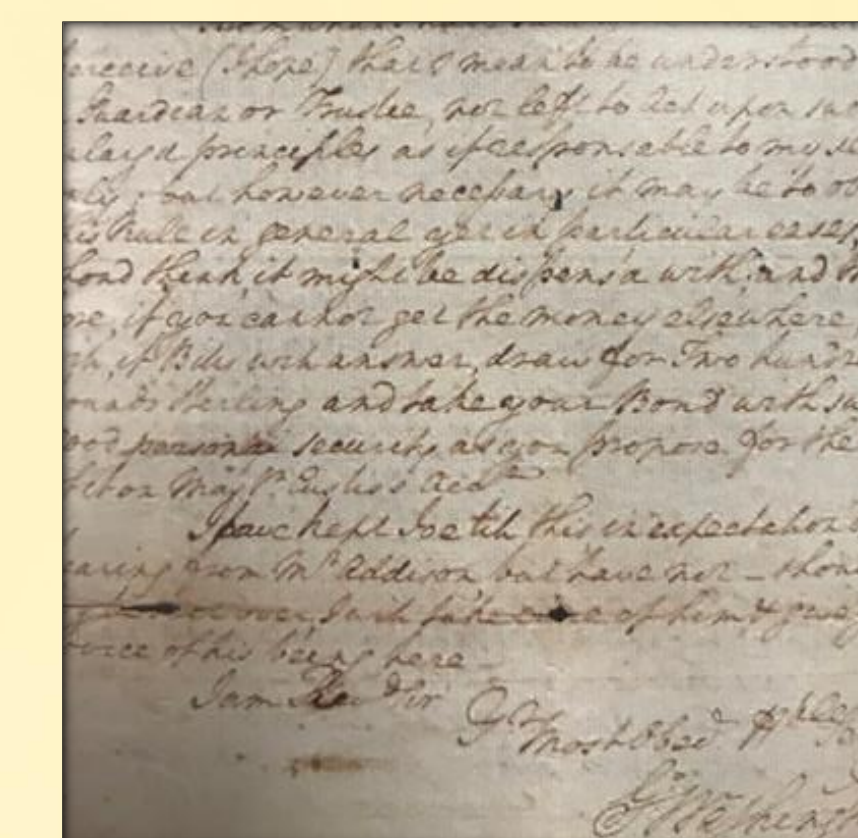 perceive (I hope) that I mean to be understood
Guardian or Trustee, not left to act upon suc
enlargd principles as if responsable to myse
only; but however necessary it may be to ob
this Rule in general yet in particular cases,
shoud think, it might be dispens'd with; and
if you cannot get the money elsewhere
if Bills with answer, draw for Two hundr
pounds Sterling and take your Bond with su
good personal security as you propose for the
Mastr. Custis's Acct
I have kept Joe till this in expectation
hearing from Mr Addison but have not - shou
I will take care of him & give
notice of his being here -
I am Revd Sir
Yr Most Obed.
Go: Washing